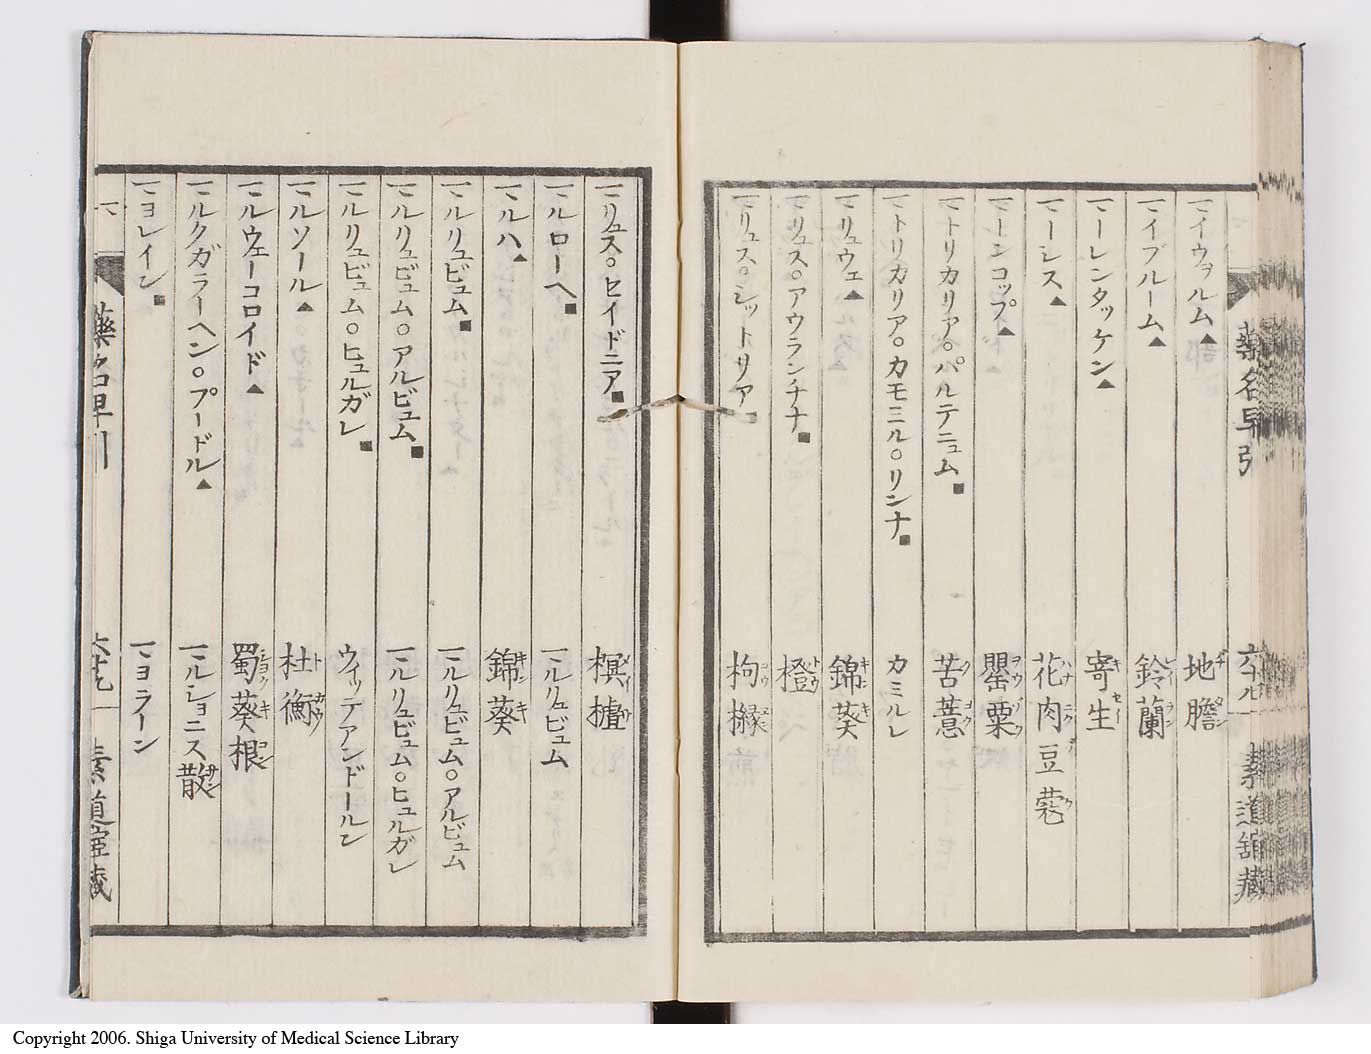 マイウヲルム▲ 地膽
マイブルーム▲ 鈴蘭
マーレンタッケン▲ 寄生
マーシス▲ 花肉豆蔲
マーンコップ▲ 罌粟
マトリカリア○パルテニュム■ 苦薏
マトリカリア○カモミル○リンナ■ カミルレ
マリュウェ▲ 錦葵
マリュス○アウランチナ■ 橙
マリュス○シットリア■ 枸櫞
マリュス○セイドニア■ 榠樝
マルローヘ■ マルリュビュム
マルハ▲ 錦葵
マルリュビュム■ マルリュビュム○アルビュム
マルリュビュム○アルビュム■ マルリュビュム○ヒュルガレ
マルリュビュム○ヒュルガレ■ ウィッテアンドールン
マルソール▲ 杜衡
マルウェーコロイド▲ 蜀葵根
マルクガラーヘン○プードル▲ マルショニス散
マヨレイン■ マヨラーン
藥名早引
Copyright 2006. Shiga University of Medical Science Library